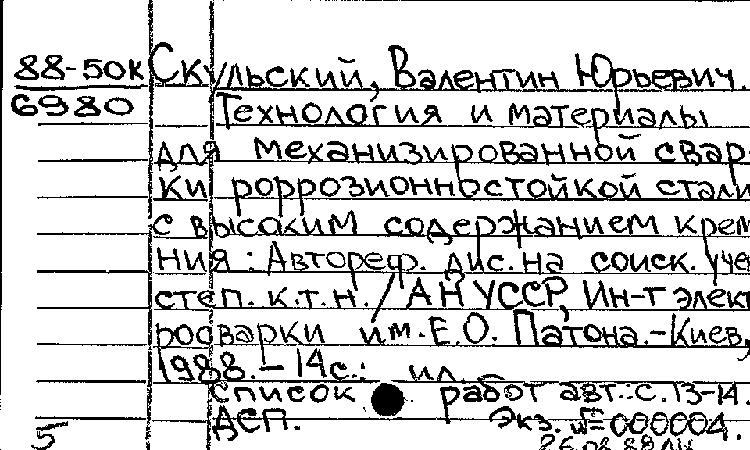 88-50К Скульский, Валентин Юрьевич.
6980 Технология и материалы
для механизированной свар-
ки роррозионностойкой стали
с высоким содержанием крем
ния: Автореф. дис. на соиск. уче
степ. к.т.н. / АН УССР, Ин-т элект
росварки им. Е.О. Патона.-Киев,
1988.-14с.: ил.
Список работ авт.: с.13-14.
ДСП. Экз. №=000004.
5